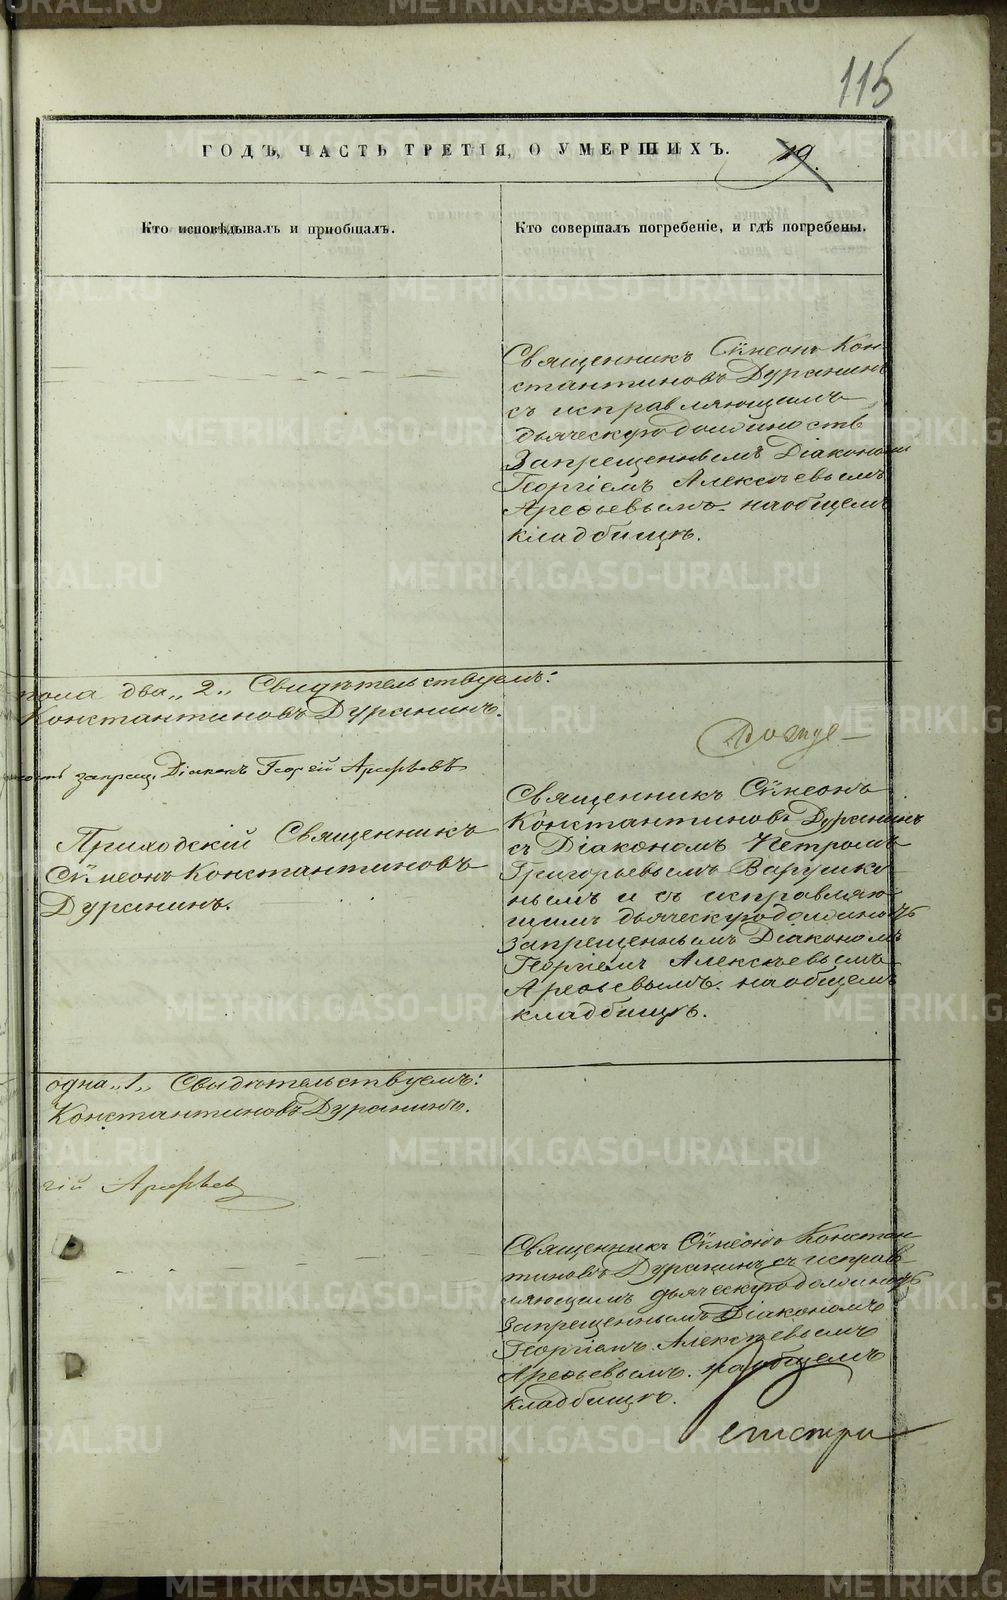 115
ГОДЪ, ЧАСТЬ ТРЕТІЯ, О УМЕРШИХЪ.
19.
Кто исповѣдывалъ и пріобщалъ.
Кто совершалъ погребеніе, и гдѣ погребены.
Священникъ Сѵмеонъ Кон-
стантиновъ Дуранинъ
съ исправляющимъ
дьяческую должность
Запрещеннымъ Діакономъ
Георгіемъ Алексѣевымъ
Арефьевымъ. на общемъ
кладбищѣ.
пола два „2„ Свидѣтельствуемъ:
Константиновъ Дуранинъ.
запрещ. Діаконъ Георгій Арефьевъ
Приходскій Священникъ
Сѵмеонъ Константиновъ
Дуранинъ.
Священникъ Сѵмеонъ
Константиновъ Дуранинъ
съ Діакономъ Петромъ
Григорьевымъ Варушки-
нымъ и съ исправляю-
щимъ дьяческую должность
запрещеннымъ Діакономъ
Георгіемъ Алексѣевымъ
Арефьевымъ. на общемъ
кладбищѣ.
одна „1„ Свидѣтельствуемъ:
Константиновъ Дуранинъ.
гій Арефьев
Священникъ Сѵмеонъ Констан-
тиновъ Дуранинъ съ исправ-
ляющимъ дьяческую должность
Запрещеннымъ Діакономъ
Георгіемъ Алексѣевымъ
Арефьевымъ. на общемъ
кладбищѣ.
METRIKI.GASO-URAL.RU